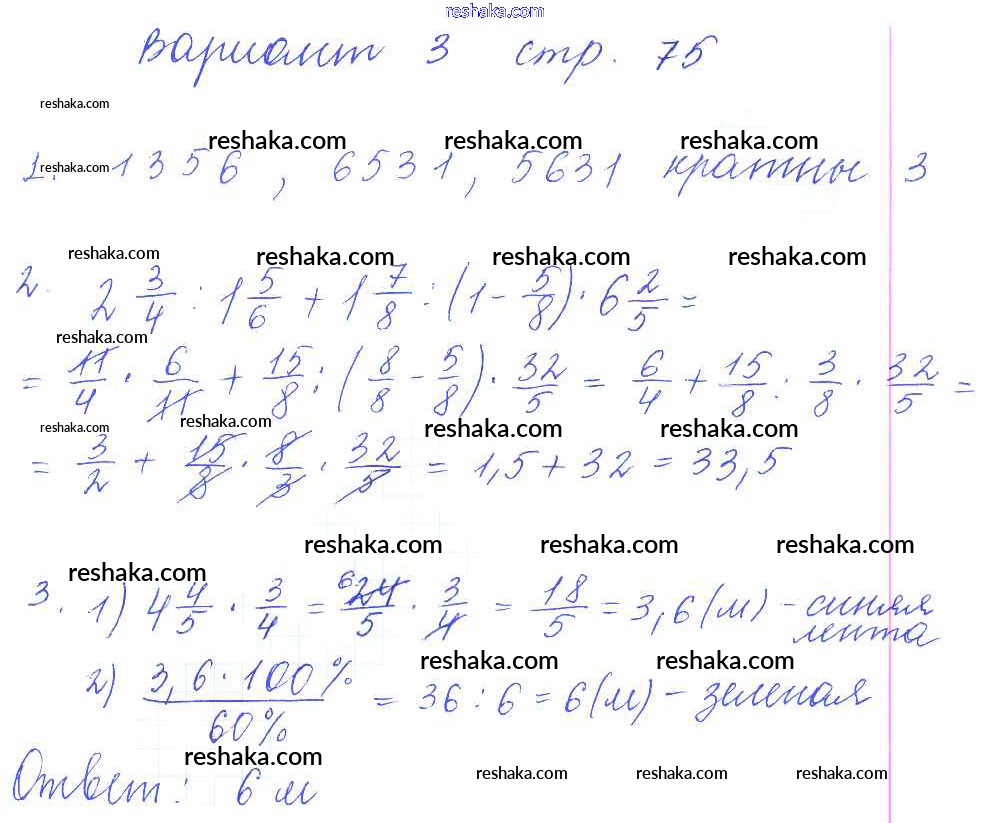 reshaka.com
Вариант 3 стр. 75
reshaka.com
reshaka.com reshaka.com reshaka.com
reshaka.com
1. 1356, 6531, 5631 кратны 3
reshaka.com reshaka.com reshaka.com reshaka.com
2. 2 3/4 : 1 5/6 + 1 7/8 : (1 - 5/8) · 6 2/5 =
reshaka.com
= 11/4 · 6/11 + 15/8 : (8/8 - 5/8) · 32/5 = 6/4 + 15/8 : 3/8 · 32/5 =
reshaka.com reshaka.com reshaka.com reshaka.com
= 3/2 + 15/8 · 8/3 · 32/5 = 1,5 + 32 = 33,5
reshaka.com reshaka.com reshaka.com
reshaka.com
3. 1) 4 4/5 · 3/4 = 6 24/5 · 3/4 = 18/5 = 3,6 (м) - синяя
лента
reshaka.com reshaka.com
2) 3,6 · 100% / 60% = 36 : 6 = 6 (м) - зеленая
reshaka.com
reshaka.com reshaka.com reshaka.com
Ответ: 6 м